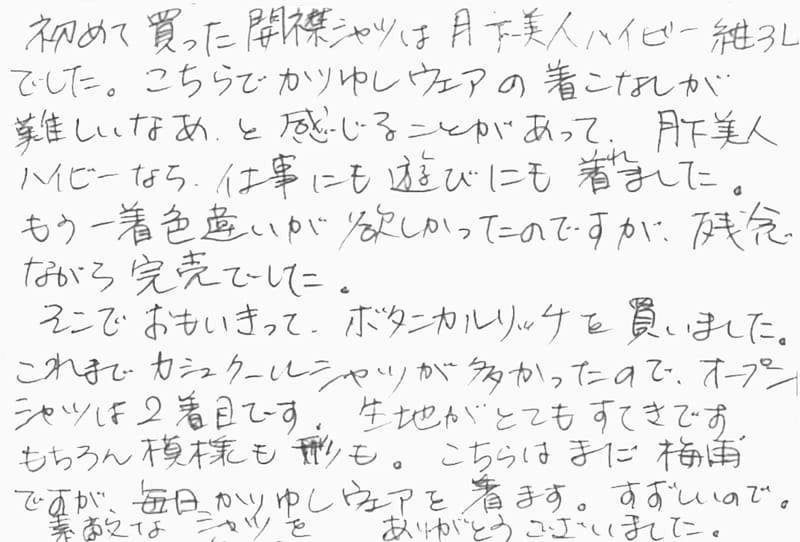 初めて買った開襟シャツは月下美人ハイビー紺3L
でした。こちらでかりゆしウェアの着こなしが
難しいなあ、と感じることがあって、月下美人
ハイビーなら、仕事にも遊びにも着れました。
もう一着色違いが欲しかったのですが、残念
ながら完売でした。
そこでおもいきって、ボタニカルリッチを買いました。
これまでカシュクールシャツが多かったので、オープン
シャツは2着目です。生地がとてもすてきです
もちろん模様も形も。こちらはまだ梅雨
ですが、毎日、かりゆしウェアを着ます。すずしいので。
素敵なシャツを ありがとうございました。